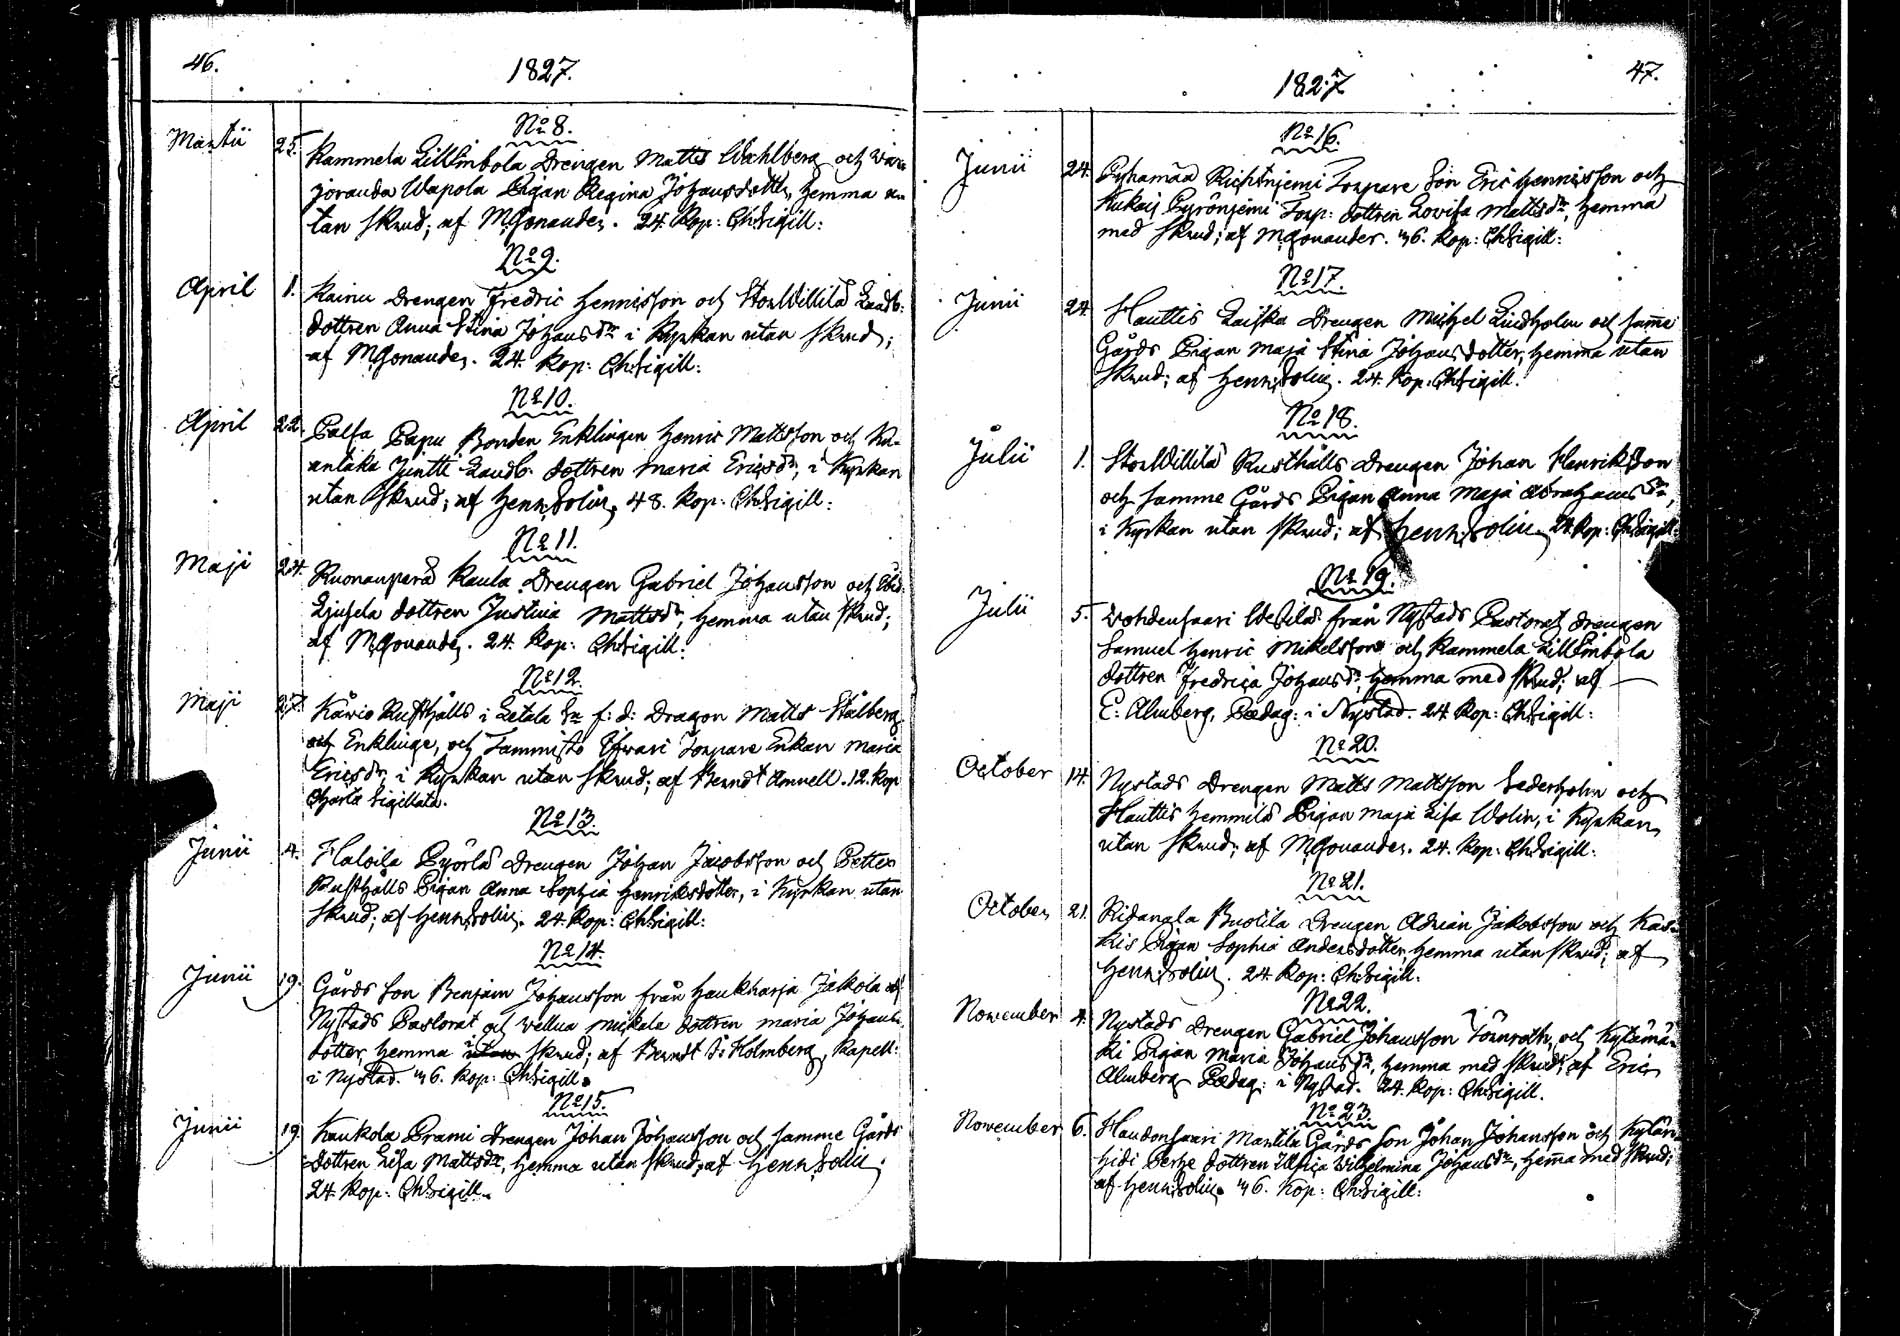 46.
1827.
No 8.
Martii 25. Kammela Lill Simbola Drengen Matts Wahlberg och Wara
joranda Wapola Pigan Regina Johansdotter, hemma u-
tan skrud; af M. Gonander. 24. Kop: Ch: Sigill:
No 9.
April 1. Kainu Drengen Fredric Hennisson och Stor Willilä Landb:
dottren Anna Stina Johans dr i Kyrkan utan skrud;
af M. Gonander. 24. Kop: Ch: Sigill:
No 10.
April 22. Palsa Papu Bonden Enklingen Henric Mattsson och
Juntti Landb. dottren Maria Ericsdr, i Kyrkan
utan skrud; af Henr: Polin, 48. Kop: Ch: Sigill:
No 11.
Maji 24. Ruonanperä Kaula Drengen Gabriel Johansson och
dottren Justina Mattsdr, hemma utan skrud;
af M. Gonander. 24. Kop: Ch: Sigill:
No 12.
Maji 27. Rusthålls i Letala Sn f: d: Dragon Matts Stålberg
och Enklinge, och Tammisto Torpare Enkan Maria
Ericsdr, i Kyrkan utan skrud; af Berndt Amnell. 12. Kop
Charta Sigillata.
No 13.
Junii 4. Haloila Pyörlä Drengen Johan Jacobsson och
Rusthålls Pigan Anna Sophia Henriksdotter, i Kyrkan utan
skrud; af Henr: Polin. 24. Kop: Ch: Sigill:
No 14.
Junii 19. Gårds Son Benjam Johansson från Haukharja Jakola af
Nystads Pastorat och Wellua Mickala dottren Maria Johans
dotter, hemma i skrud; af Berndt J: Holmberg, Kapell:
i Nystad. 36. Kop: Ch: Sigill.
No 15.
Junii 19. Kaukola Prami Drengen Johan Johansson och samme Gårds
dottren Lisa Mattsdr, hemma utan skrud; af Henr: Polin.
24. Kop: Ch: Sigill.
1827
47.
No 16.
Junii 24. Pyhämaa Torpare Son Eric Hennisson och
Kukais Pyrönjemi Torp: dottren Lovisa Mattsdr, hemma
med skrud; af M. Gonander. 36. Kop: Ch: Sigill:
No 17.
Junii 24. Hauttis Laiska Drengen Michel Lindholm och samme
Gårds Pigan Maja Stina Johansdotter, hemma utan
skrud; af Henr: Polin. 24. Kop: Ch: Sigill:
No 18.
Julii 1. Stor Willilä Rusthålls Drengen Johan Henriksson
och samme Gårds Pigan Anna Maja Abrahamsdr,
i Kyrkan utan skrud; af Henr: Polin. 24. Kop: Ch: Sigill:
No 19.
Julii 5. Vohdensaari från Nystads Pastorat Drengen
Samuel Henric Mikelsson och Kammela Lill Simbola
dottren Fredrica Johansdr, hemma med skrud; af
E: Almberg, Pædag: i Nystad. 24. Kop: Ch: Sigill:
No 20.
October 14. Nystads Drengen Matts Mattsson Sederholm och
Hauttis Hemmilä Pigan Maja Lisa Wolin, i Kyrkan
utan skrud; af M. Gonander. 24. Kop: Ch: Sigill:
No 21.
October 21. Ridanala Drengen Adrian Jakobsson och Kas-
kis Pigan Sophia Andersdotter, hemma utan skrud; af
Henr: Polin. 24. Kop: Ch: Sigill:
No 22.
November 4. Nystads Drengen Gabriel Johansson Törnroth, och Kytämä-
ki Pigan Maria Johansdr, hemma med skrud; af Eric
Almberg Pædag: i Nystad. 24. Kop: Ch: Sigill.
No 23.
November 6. Haudonsaari Martila Gårds Son Johan Johansson och Kylän-
hidi Perhe dottren Ulrica Wilhelmina Johansdr, hemma med skrud;
af Henr: Polin. 36. Kop: Ch: Sigill: